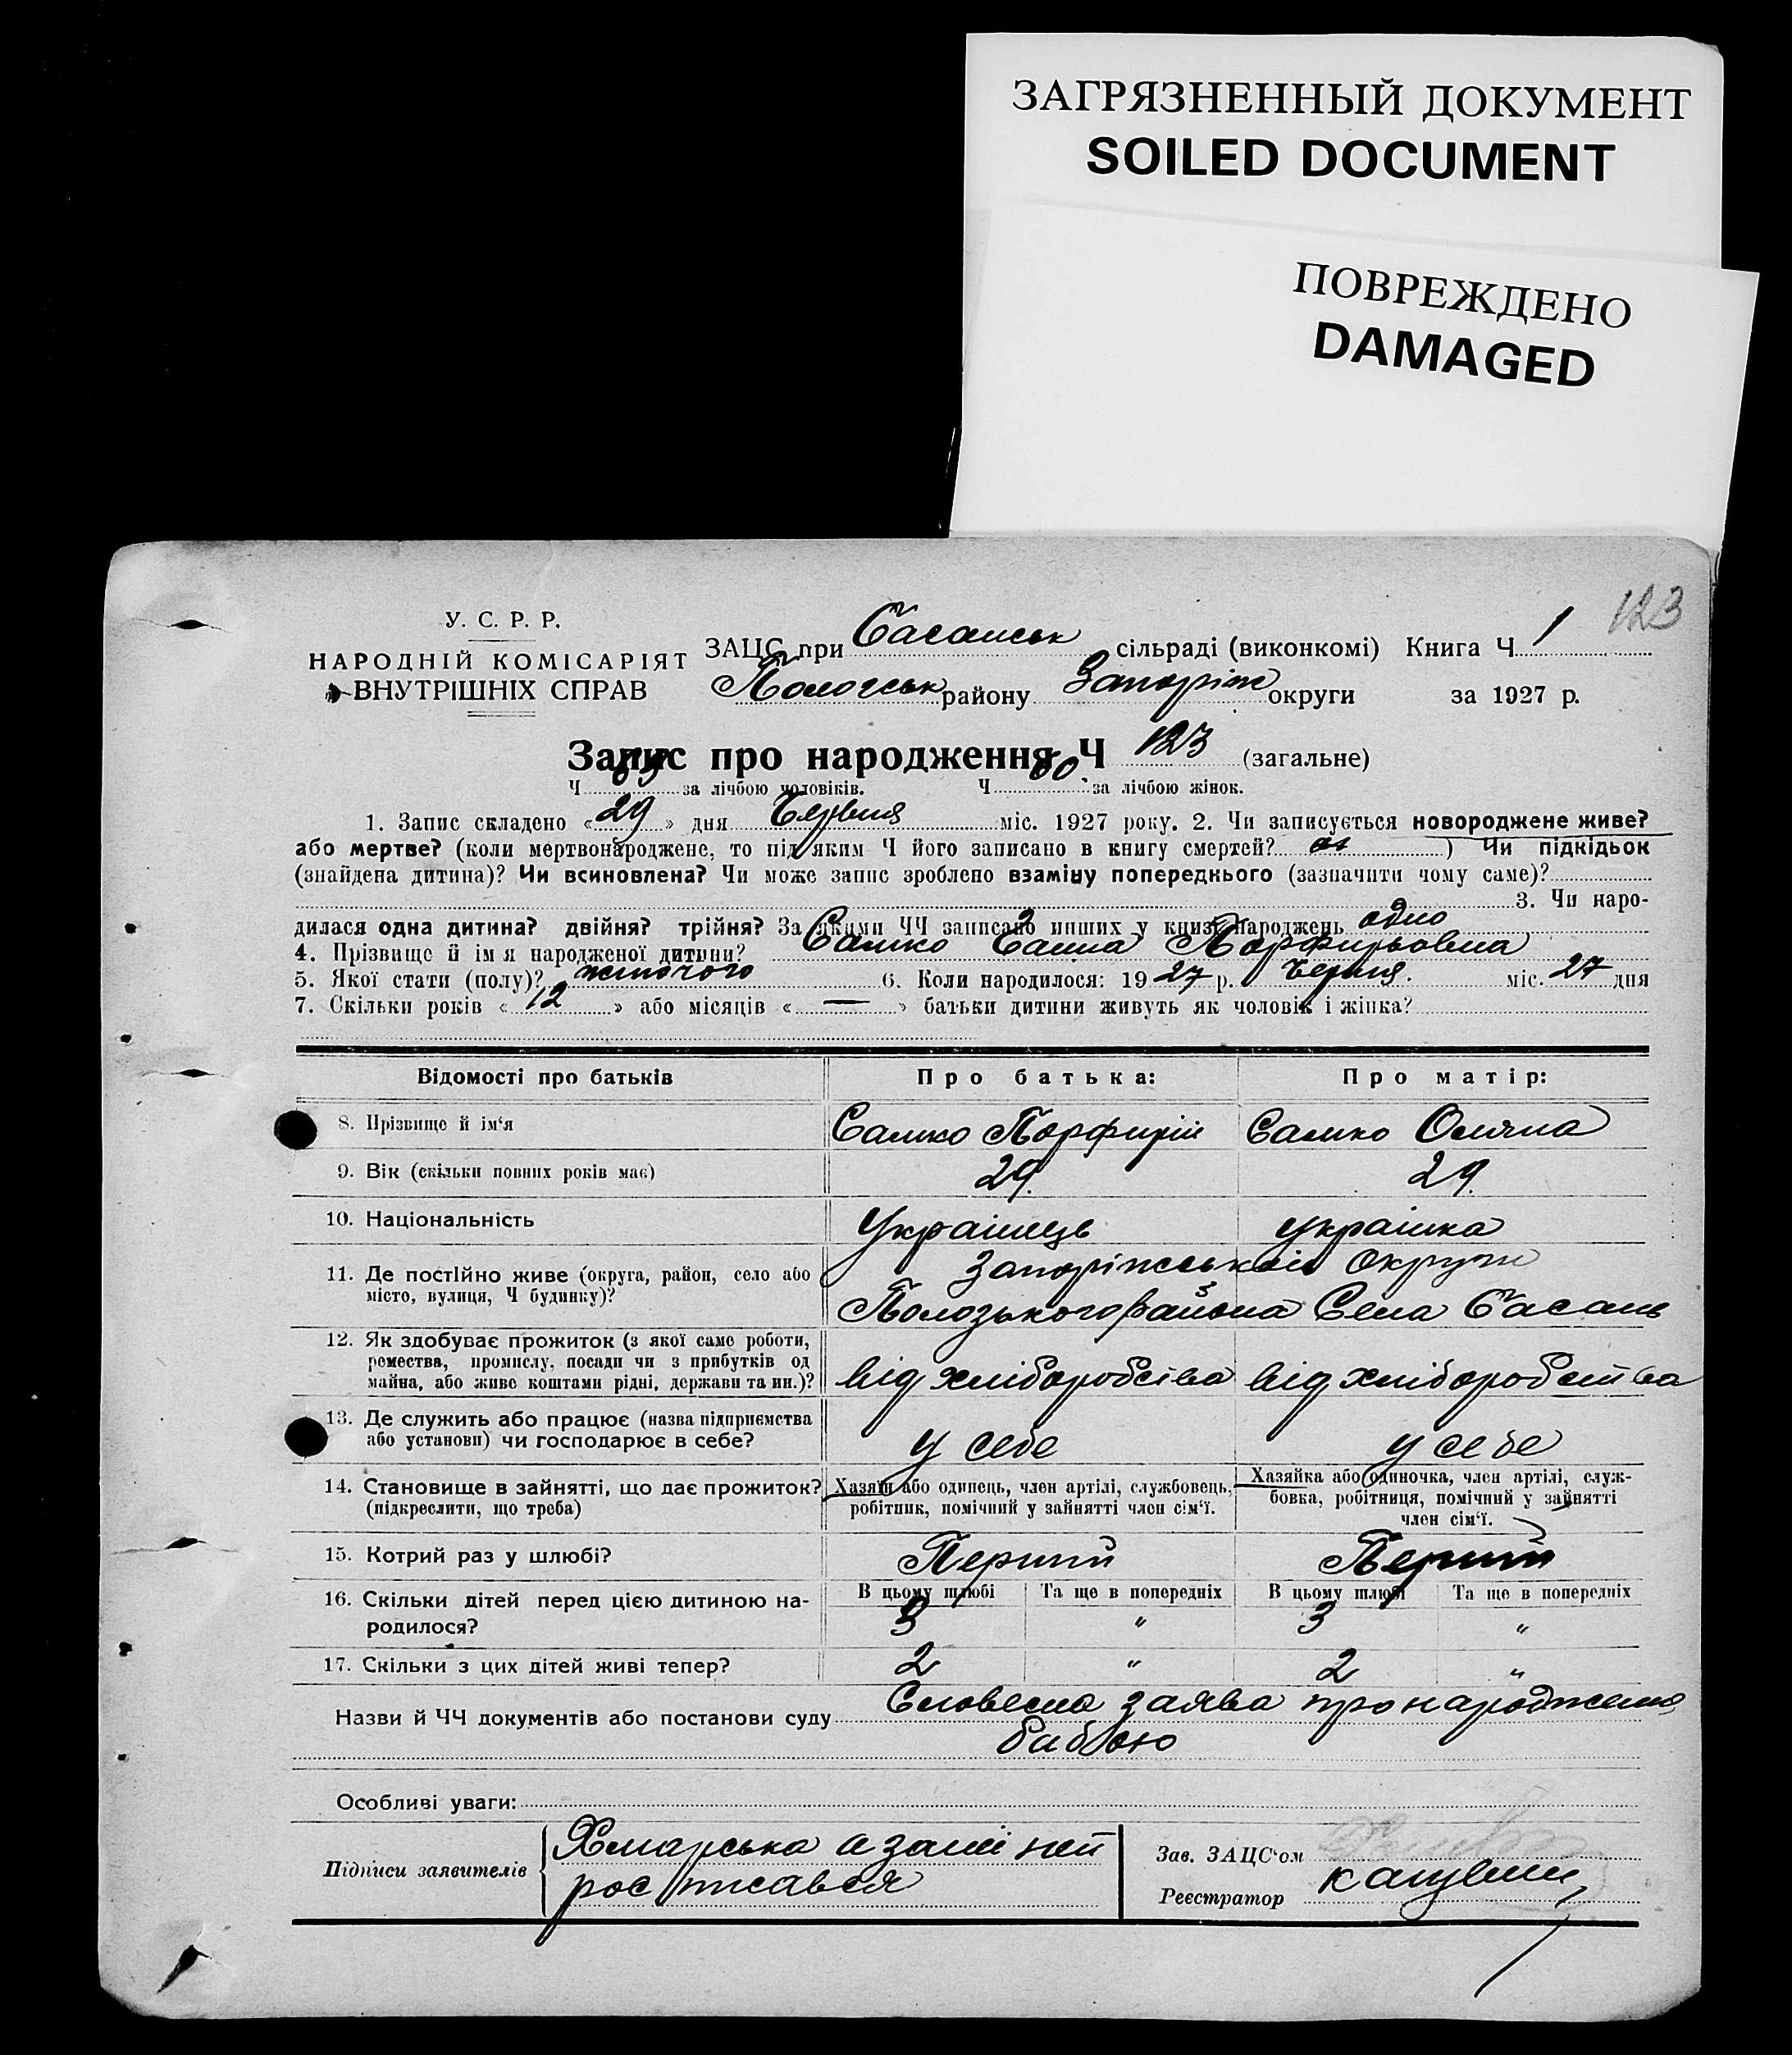 ЗАГРЯЗНЕННЫЙ ДОКУМЕНТ
SOILED DOCUMENT
ПОВРЕЖДЕНО
DAMAGED
123
У. С. Р. Р.
НАРОДНІЙ КОМІСАРІЯТ
ВНУТРІШНІХ СПРАВ
ЗАЦС при Басанськ сільраді (виконкомі) Книга Ч 1
Пологськ району Запоріж округи за 1927 р.
Запис про народження Ч 123 (загальне)
Ч 63 за лічбою чоловіків. Ч 60 за лічбою жінок.
1. Запис складено « 29 » дня Червня міс. 1927 року. 2. Чи записується новороджене живе?
або мертве? (коли мертвонароджене, то під яким Ч його записано в книгу смертей? ) Чи підкідьок
(знайдена дитина)? Чи всиновлена? Чи може запис зроблено взаміну попереднього (зазначити чому саме)?
3. Чи наро-
дилася одна дитина? двійня? трійня? За якими ЧЧ записано инших у книзі народжень одно
4. Прізвище й ім'я народженої дитини? Самко Ганна Порфирьовна
5. Якої стати (полу)? жіночого 6. Коли народилося: 19 27 р. Червня. міс. 27 дня
7. Скільки років « 12 » або місяців « — » батьки дитини живуть як чоловік і жінка?
Відомості про батьків Про батька: Про матір:
8. Прізвище й ім‘я Самко Порфирій Самко Оляна
9. Вік (скільки повних років має) 29. 29.
10. Національність Українець українка
11. Де постійно живе (округа, район, село або місто, вулиця, Ч будинку)? Запоріжської Округи
Полозького району Села Басань
12. Як здобуває прожиток (з якої саме роботи,
ремества, промислу, посади чи з прибутків од
майна, або живе коштами рідні, держави та ин.)? від хліборобства від хліборобства
13. Де служить або працює (назва підприємства
або установи) чи господарює в себе? у себе у себе
14. Становище в зайнятті, що дає прожиток?
(підкреслити, що треба)
Хазяїн або одинець, член артілі, службовець,
робітник, помічний у зайнятті член сім‘ї.
Хазяйка або одиночка, член артілі, служ-
бовка, робітниця, помічний у зайнятті
член сім‘ї.
15. Котрий раз у шлюбі? Перший Перший
В цьому шлюбі Та ще в попередніх В цьому шлюбі Та ще в попередніх
16. Скільки дітей перед цією дитиною на-
родилося? 3 „ 3 „
17. Скільки з цих дітей живі тепер? 2 „ 2 „
Назви й ЧЧ документів або постанови суду Словесна заява про народження
бабою
Особливі уваги:
Підписи заявителів Хмарська а замі ней
росписався
Зав. ЗАЦС‘ом
Реєстратор